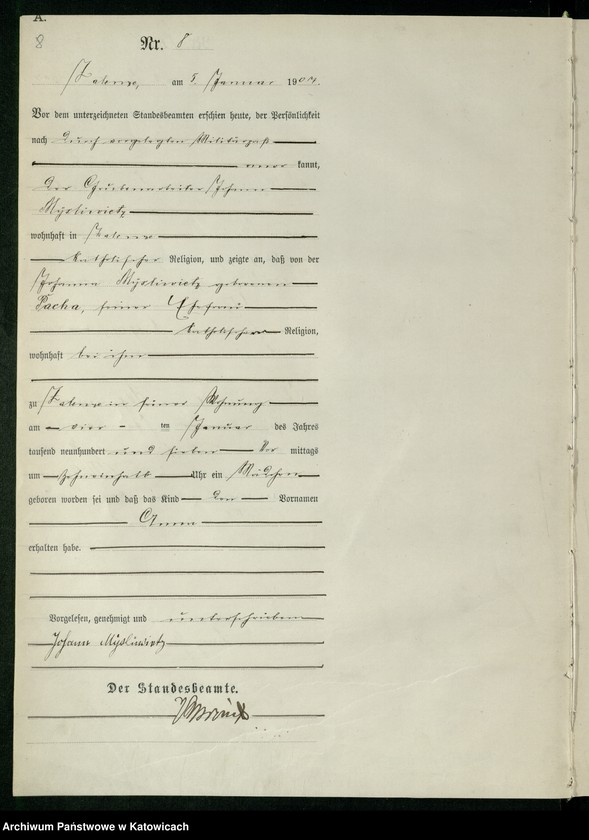 A.
8
Nr. 8
Zalenze, am 8. Januar 1907.
Vor dem unterzeichneten Standesbeamten erschien heute, der Persönlichkeit
nach durch vorgelegten Militärpaß
aner kannt,
der Grubenarbeiter Johann
Mysliwietz
wohnhaft in Zalenze
katholischer Religion, und zeigte an, daß von der
Johanna Mysliwietz geborenen
Pacha, seiner Ehefrau
katholischer Religion,
wohnhaft bei ihm
zu Zalenze in seiner Wohnung
am vier ten Januar des Jahres
tausend neunhundert und sieben Vor mittags
um zehneinhalb Uhr ein Mädchen
geboren worden sei und daß das Kind den Vornamen
Anna
erhalten habe.
Vorgelesen, genehmigt und unterschrieben
Johann Mysliwietz
Der Standesbeamte.
Archiwum Państwowe w Katowicach